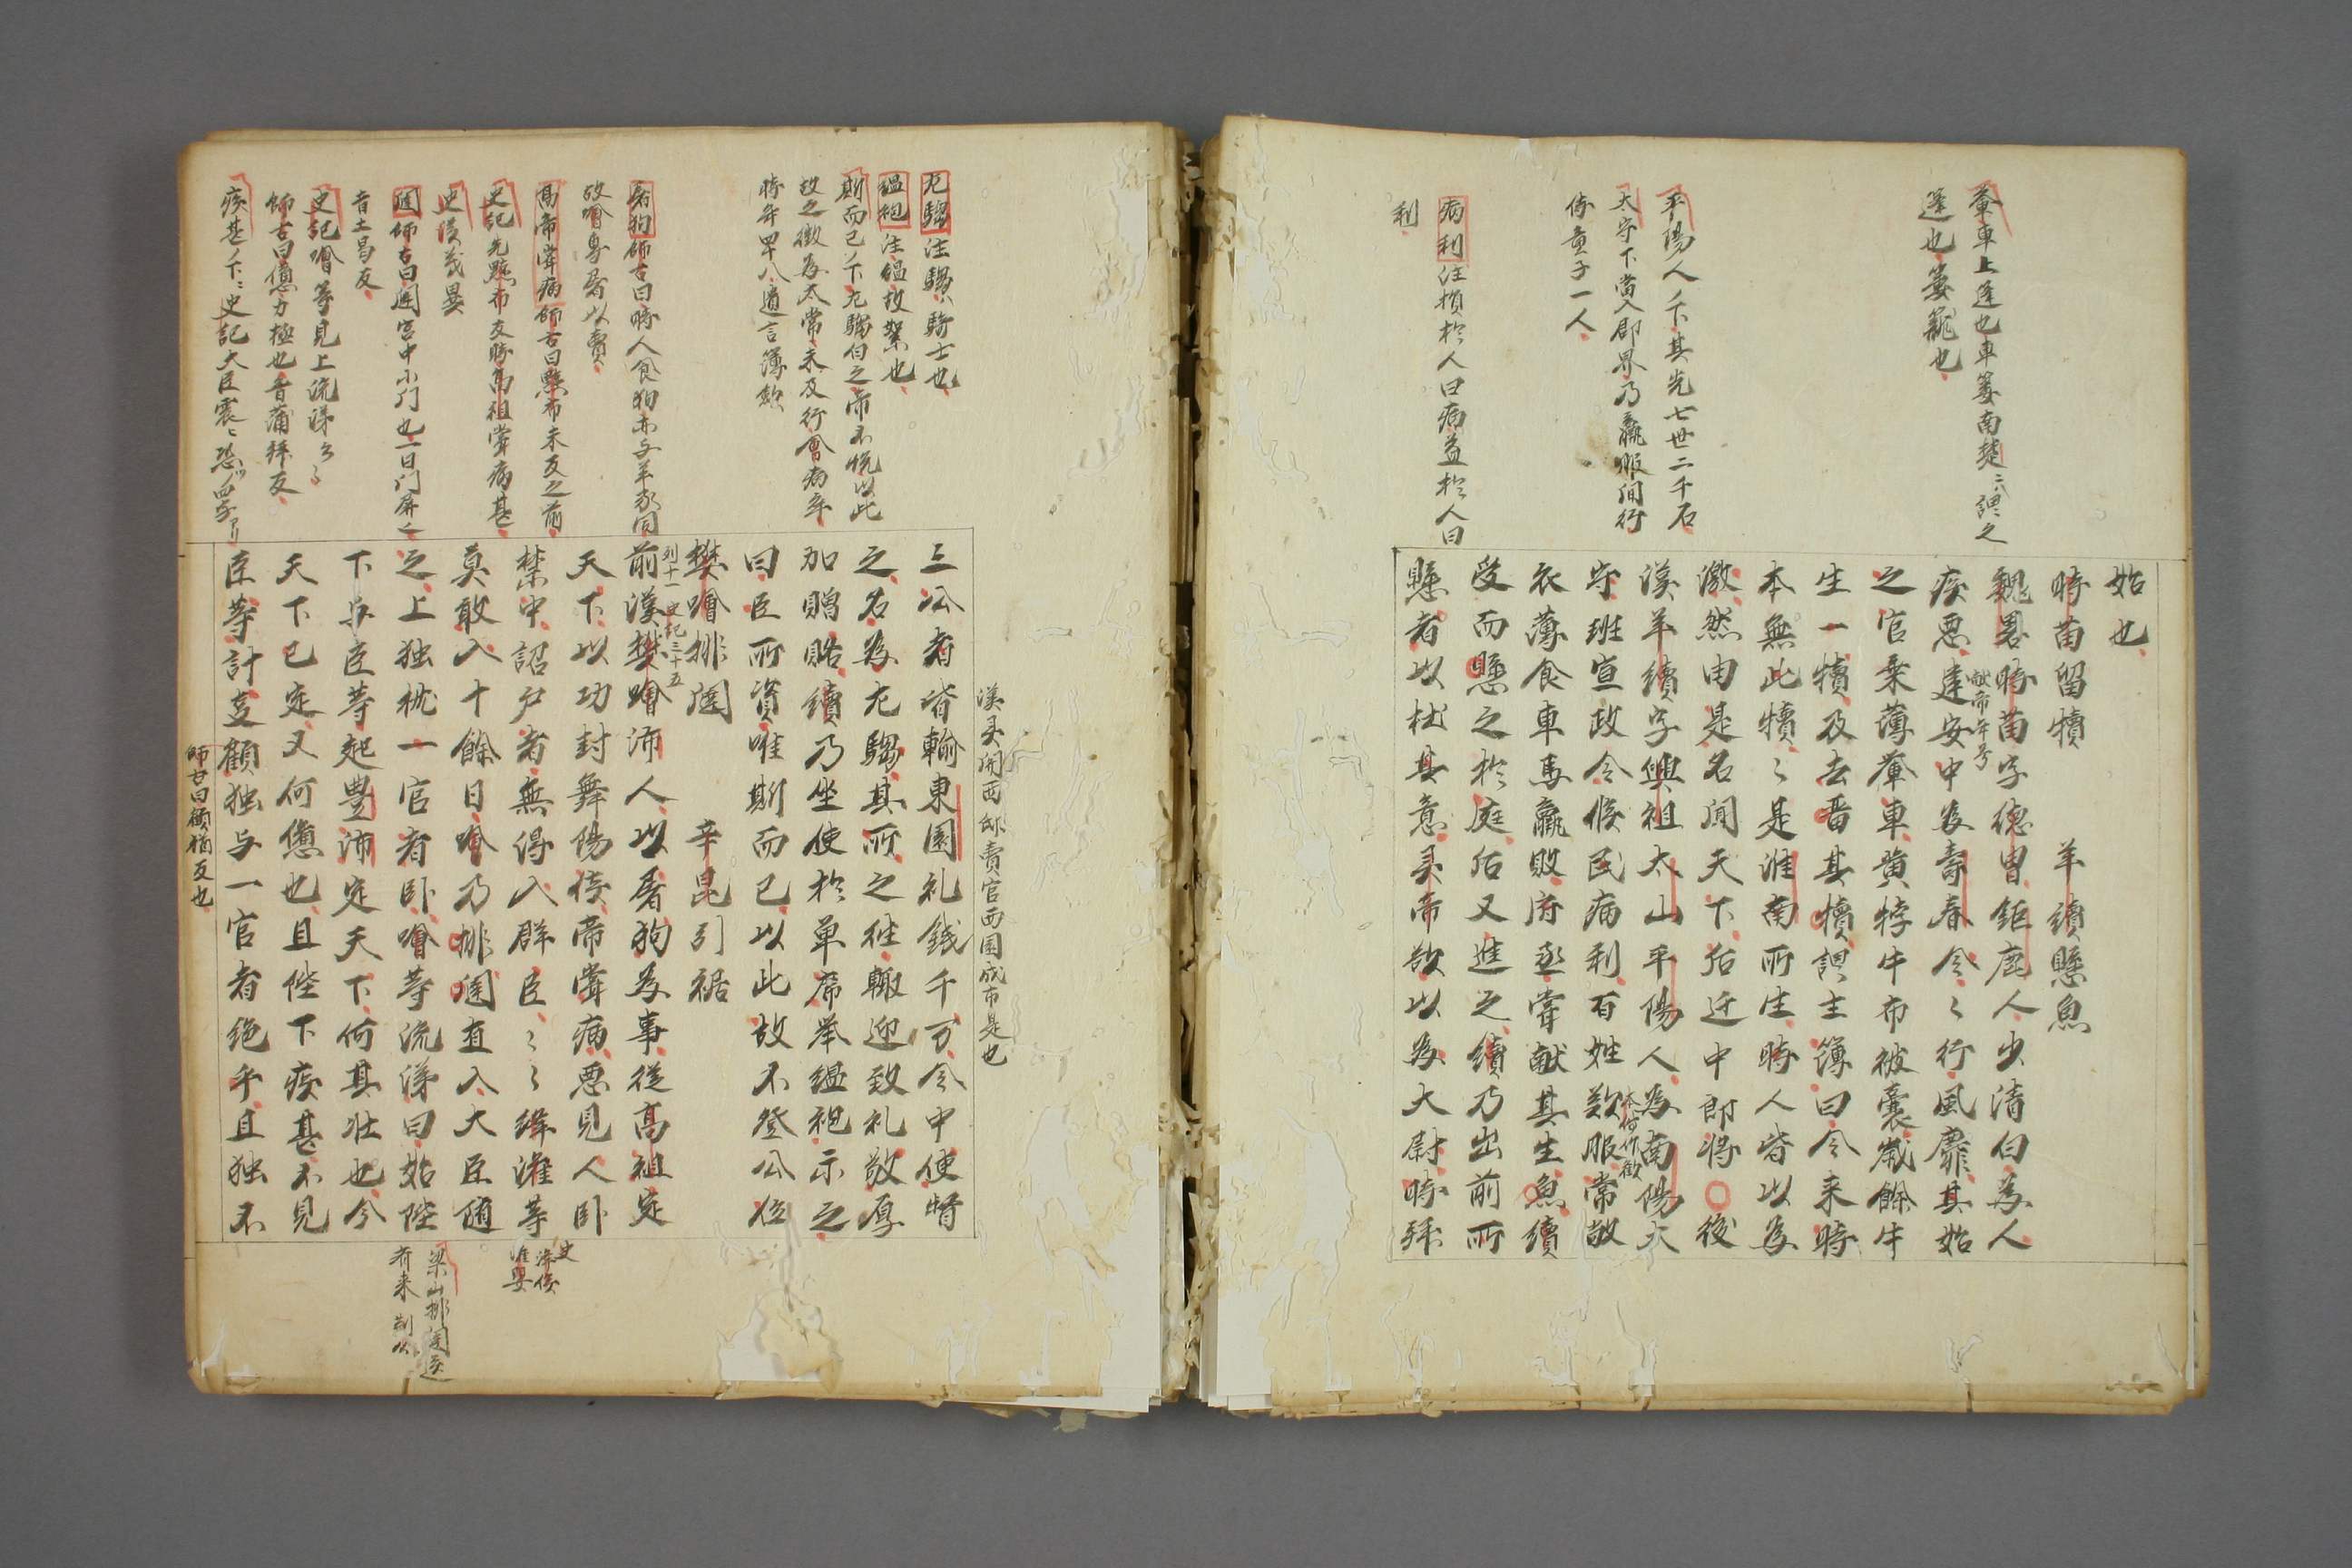 軬車上篷也車簍南楚之謂之
篷也簍籠也
平陽人ノ下其先七世二千石
太守下當入郡界乃羸服間行
侍童子一人
病利注損於人曰病益於人曰
利
始也
時苗留犢 羊續懸魚
魏畧時苗字德冑鉅鹿人少清白為人
疾悪建安中為壽春令〻行風靡其始
獻帝年号
之官乗薄軬車黄牸牛布被囊歳餘牛
生一犢及去畱其犢謂主簿曰令来時
本無此犢〻是淮南所生時人皆以為
激然由是名聞天下后迁中郎将○後
漢羊續字興祖太山平陽人為南陽太
守班宣政令候民病利百姓歎服常敝
本傳作敝
衣薄食車馬羸敗府丞甞献其生魚續
受而懸之於庭后又進之續乃出前所
懸者以杜其意灵帝欲以為大尉時拜
左騶注騶騎士也
縕袍注縕故絮也
斯而已ノ下左騶白之帝不悦以此
故之徴為太常未及行會病卒
時年四十八遺言薄斂
漢灵開西邸賣官西園成市是也
三公者皆輸東園礼錢千万令中使督
之名為左騶其所之往輙迎致礼敬厚
加贈賂續乃坐使於単席举縕袍示之
曰臣所資唯斯而已以此故不登公位
樊噲排闥 辛毘引裾
列十一 史記三十五
前漢樊噲沛人以屠狗為事從高祖定
天下以功封舞陽侯帝甞病悪見人卧
禁中詔戸者無得入群臣〻〻絳灌等
莫敢入十餘日噲乃排闥直入大臣随
之上独枕一宦者卧噲等流涕曰始陛
下与臣等起豊沛定天下何其壮也今
天下已定又何憊也且陛下疾甚不見
臣等計亊顧独与一宦者絶乎且独不
屠狗師古曰時人食狗亦与羊豕同
故噲專屠以賣
高帝甞病師古曰黥布未反之前
史記先黥布反時高祖甞病甚
史漢義異
闥師古曰闥宮中小門也一曰門屏也
音土曷反
史記噲等見上流涕云〻
師古曰憊力極也音蒲拜反
疾甚ノ下史記大臣震〻恐ノ四字アリ
師古曰顧猶反也
史
絳侯
灌嬰